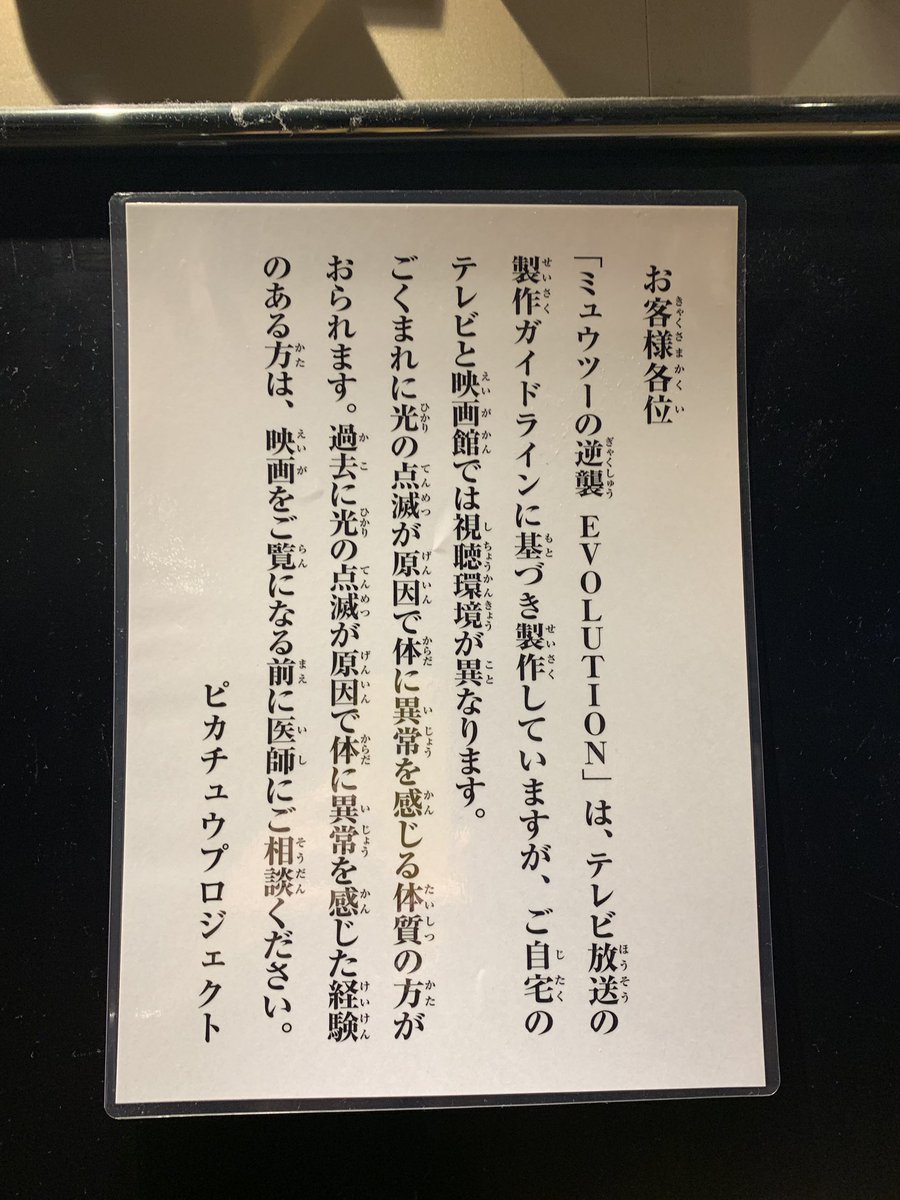 お客様各位
「ミュウツーの逆襲 EVOLUTION」は、テレビ放送の
製作ガイドラインに基づき製作していますが、ご自宅の
テレビと映画館では視聴環境が異なります。
ごくまれに光の点滅が原因で体に異常を感じる体質の方が
おられます。過去に光の点滅が原因で体に異常を感じた経験
のある方は、映画をご覧になる前に医師にご相談ください。
ピカチュウプロジェクト